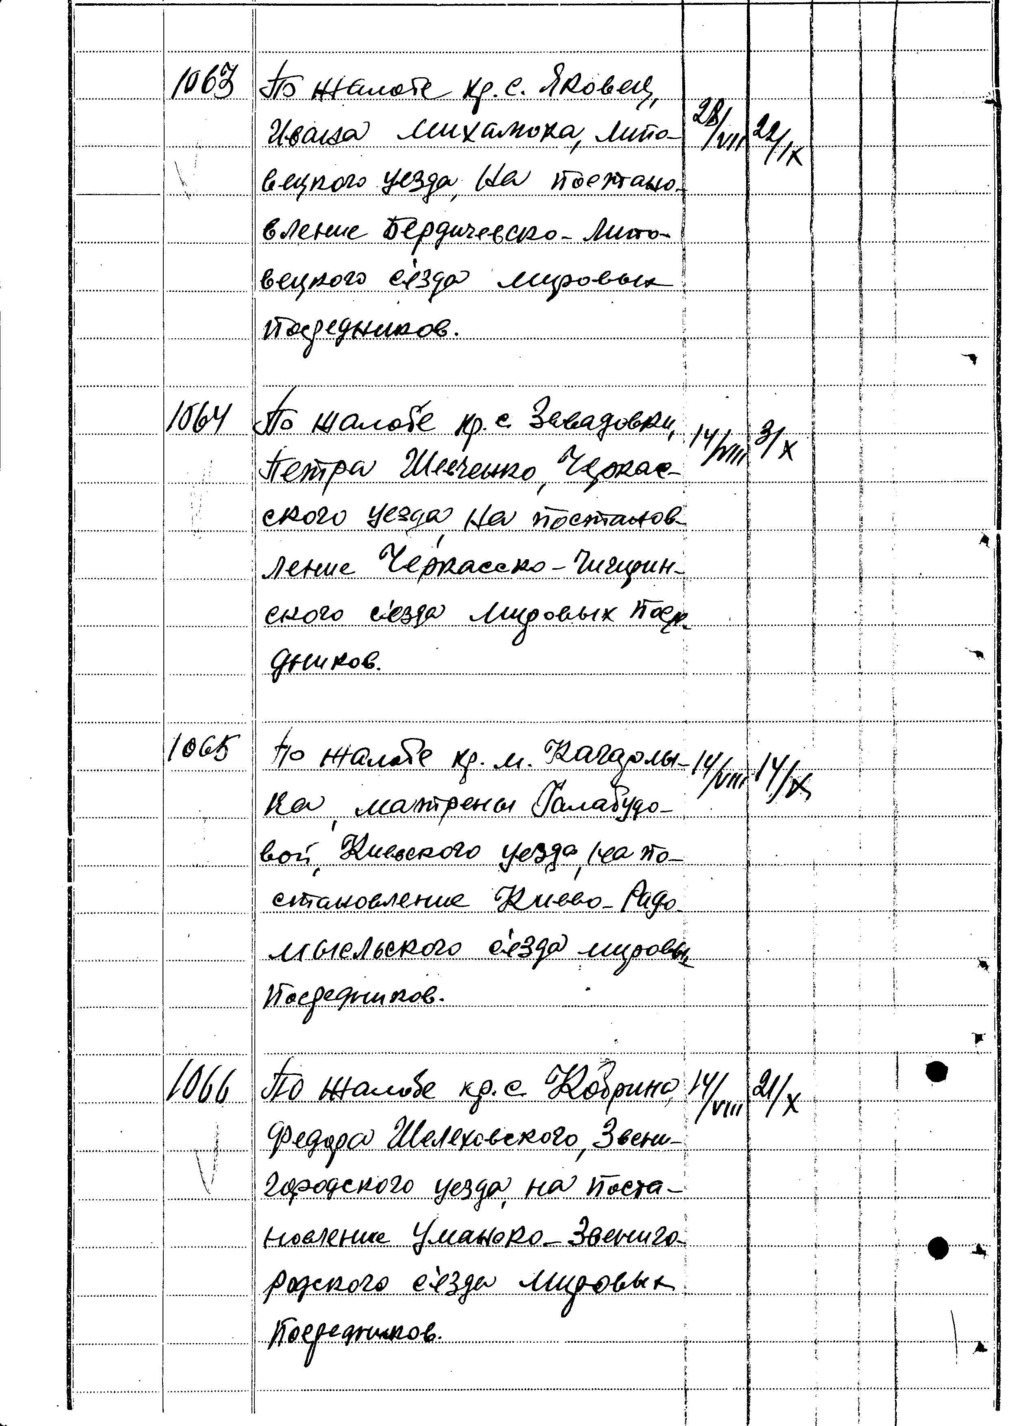 1063 По жалобе кр. с. Яковец,
Ивана Михалюка, Липо- 28/VII 22/IX
вецкого уезда, на постано-
вление Бердичевско-Липо-
вецкого с'езда мировых
посредников.
1064 По жалобе кр. с. Завадовки, 14/VIII 3/X
Петра Шевченко, Черкас-
ского уезда, на постанов-
ление Черкасско-Чигирин-
ского с'езда мировых посре-
дников.
1065 По жалобе кр. м. Кагарлы- 14/VIII 14/IX
ка, Матрены Галабудо-
вой, Киевского уезда, на по-
становление Киево-Радо-
мысльского с'езда мировых
посредников.
1066 По жалобе кр. с. Кобрино, 14/VIII 21/X
Федора Шелеховского, Звени-
городского уезда, на поста-
новление Уманско-Звениго-
родского с'езда мировых
посредников.